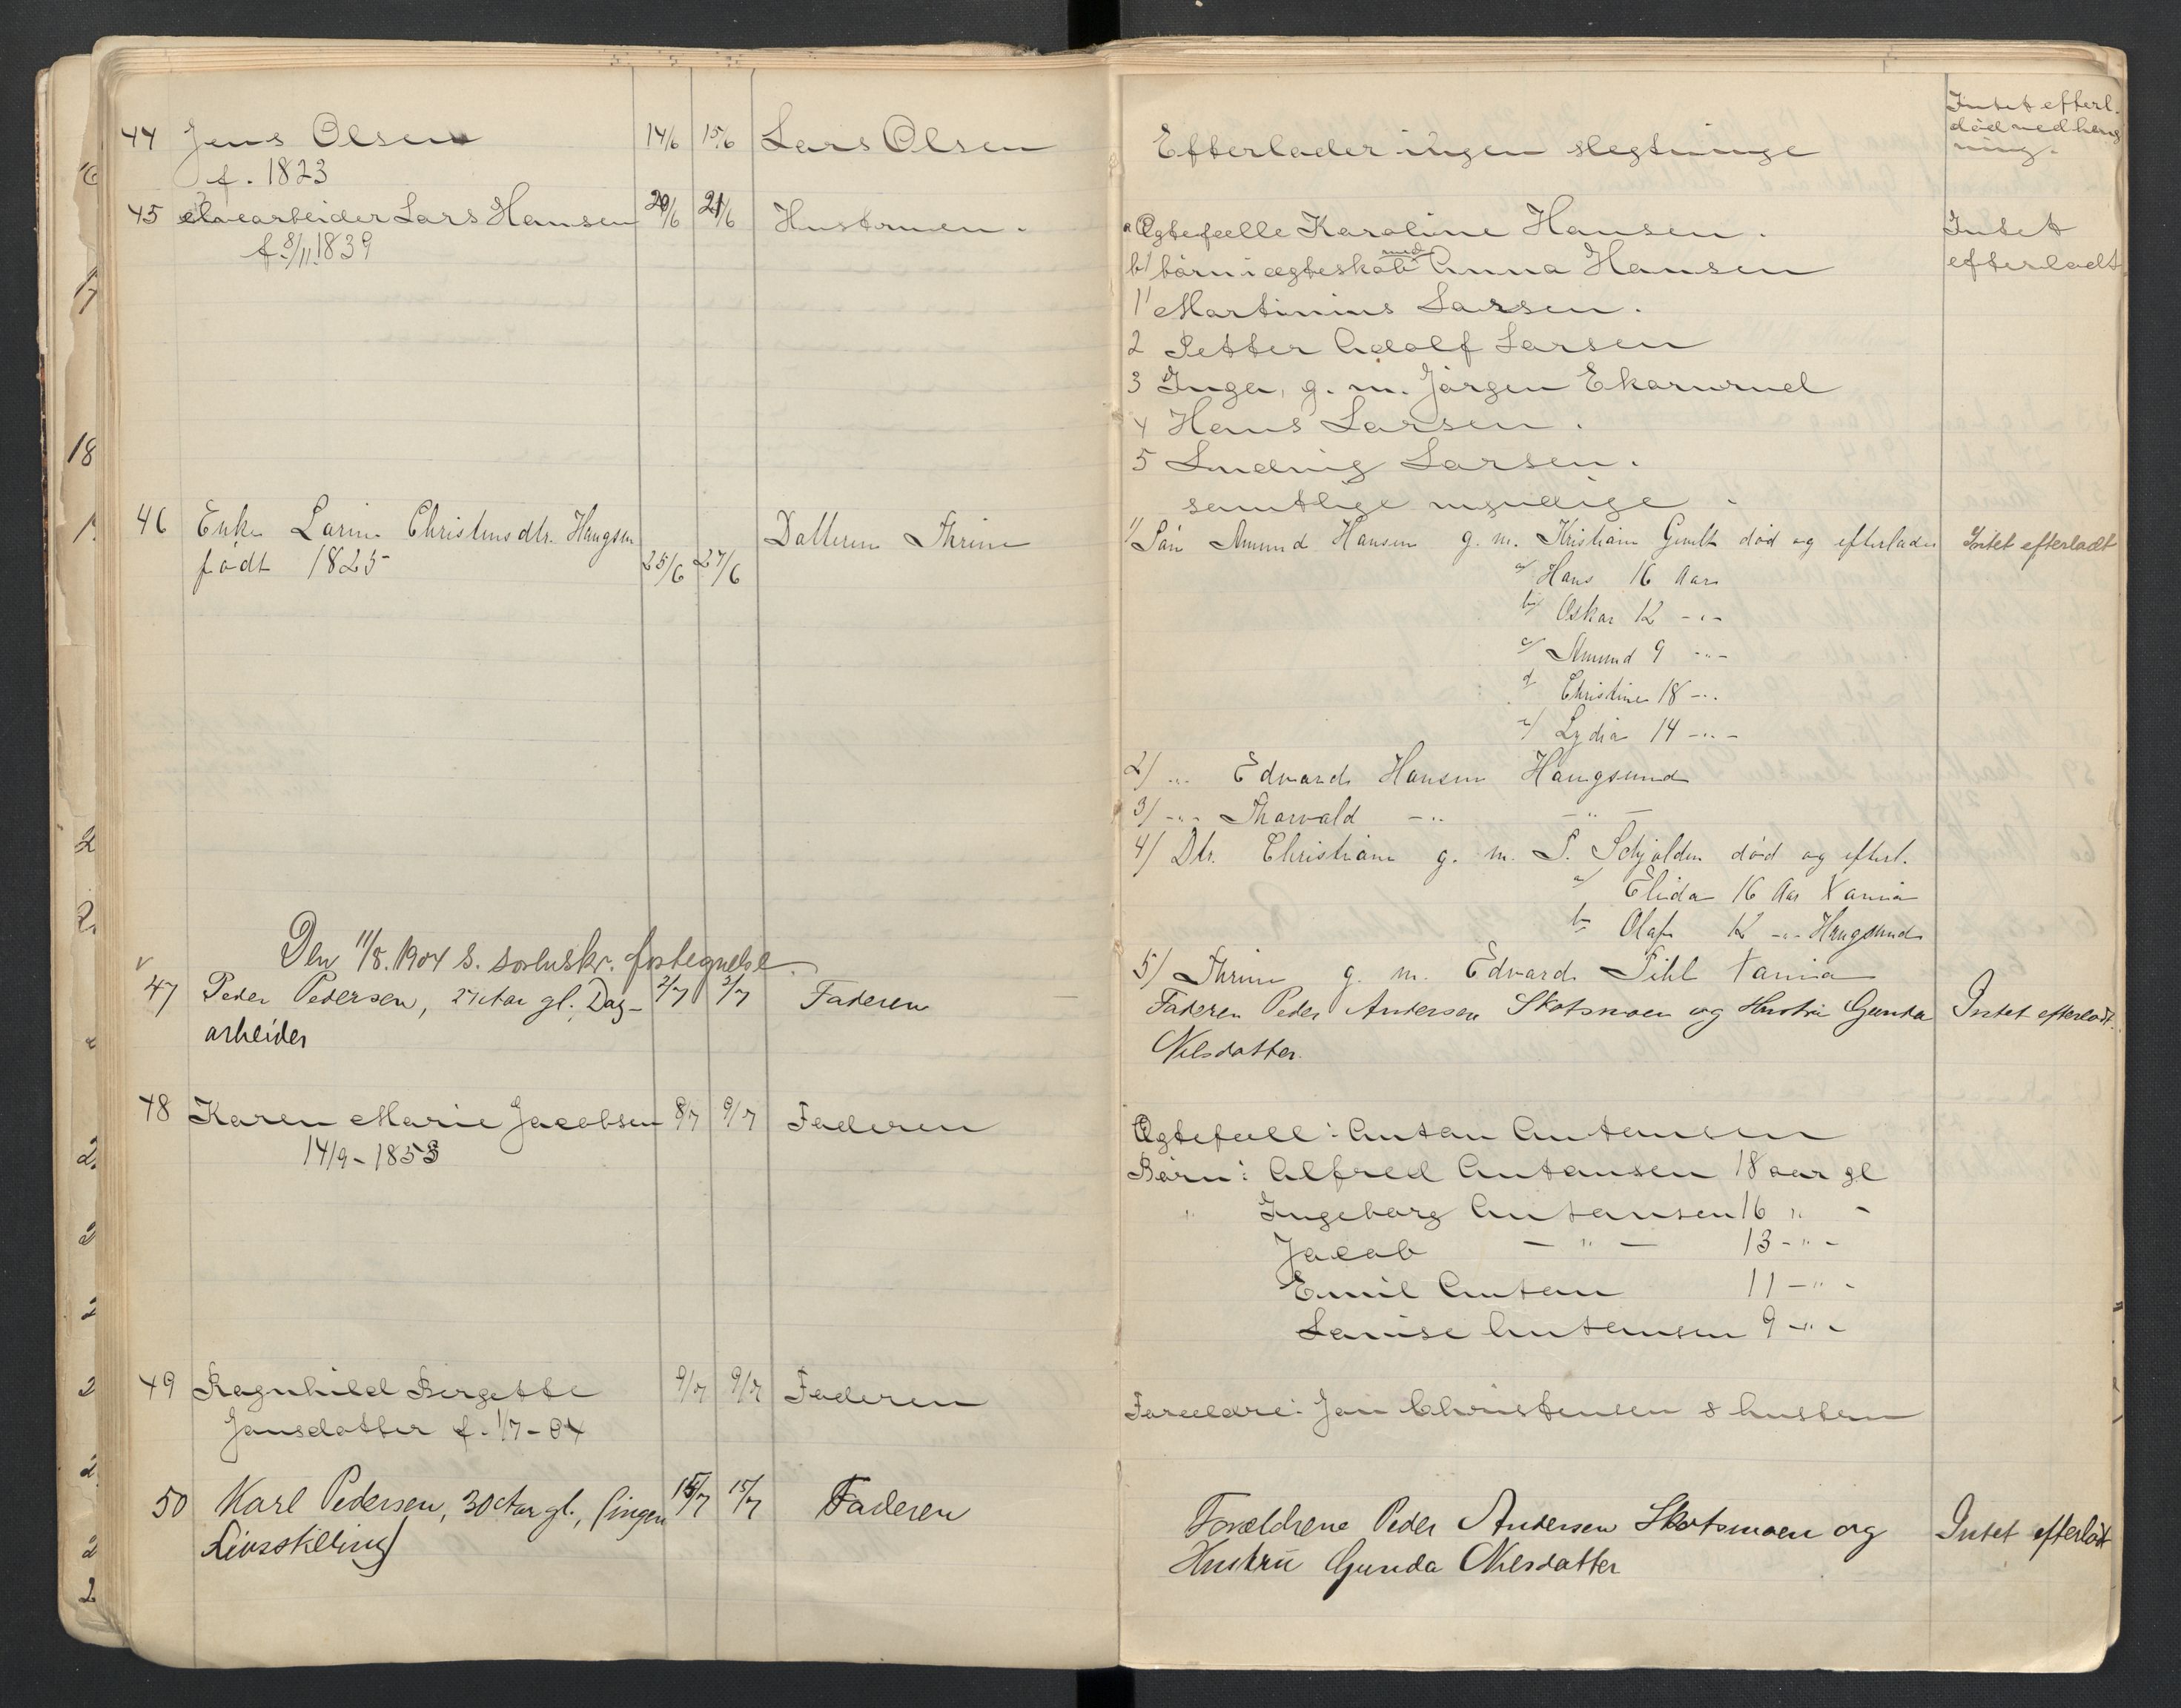 44 Jens Olsen 14/6 15/6 Lars Olsen Efterlader ingen slegtninge Intet efterl.
f. 1823 død ved hæng
ning.
45 elvearbeider Lars Hansen 20/6 21/6 Hustruen. a Ægtefælle Karoline Hansen. Intet
f. 8/11.1839 b) børn i ægteskab med Anna Hansen efterladt
1) Martinius Larsen.
2 Petter Adolf Larsen
3 Inga, g. m. Jørgen Ekornrud
4 Hans Larsen.
5 Ludvig Larsen.
samtlige myndige.
46 Enke Larine Christensdtr. Haugsun 25/6 27/6 Datteren Thrine 1) Søn Amund Hansen g. m. Kristiane død og efterlader Intet efterladt
født 1825
a/ Hans 16 Aar
b/ Oskar 12 -"-
c/ Amund 9 -"-
d Christine 18 -"-
e/ Lydia 14 -"-
2) " Edvard Hansen Haugsund
3) -"- Thorvald -" -"-
4) Dtr. Christiane g. m. S. Schjolden død og efterl.
a/ Elida 16 Aar Vania
b Olaf 12 -"- Haugsund
5) Thrine g. m. Edvard Pihl Vania
Den 11/8.1904 S. sorenskr. fortegnelse.
47 Peder Pedersen, 27 Aar gl. Dag- 2/7 3/7 Faderen Faderen Peder Andersen Skotsmoen og Hustru Gunda Intet efterladt.
arbeider Nilsdatter.
48 Karen Marie Jacobsen 8/7 9/7 Faderen Ægtefæll: Anton Antonsen
14/9-1853 Børn: Alfred Antonsen 18 aar gl
" Ingeborg Antonsen 16 " -
Jacob - " - 13 -"-
Emil Anton 11 -"-
Louise Antonsen 9 -"-
49 Ragnhild Bergette 9/7 9/7 Faderen Forældre: Jan Christensen & hustru
Jansdatter f. 1/7-04
50 Karl Pedersen, 30 Aar gl., (ingen 15/7 15/7 Faderen Forældrene Peder Andersen Skotsmoen og Intet efterladt
Livsstilling) Hustru Gunda Nilsdatter